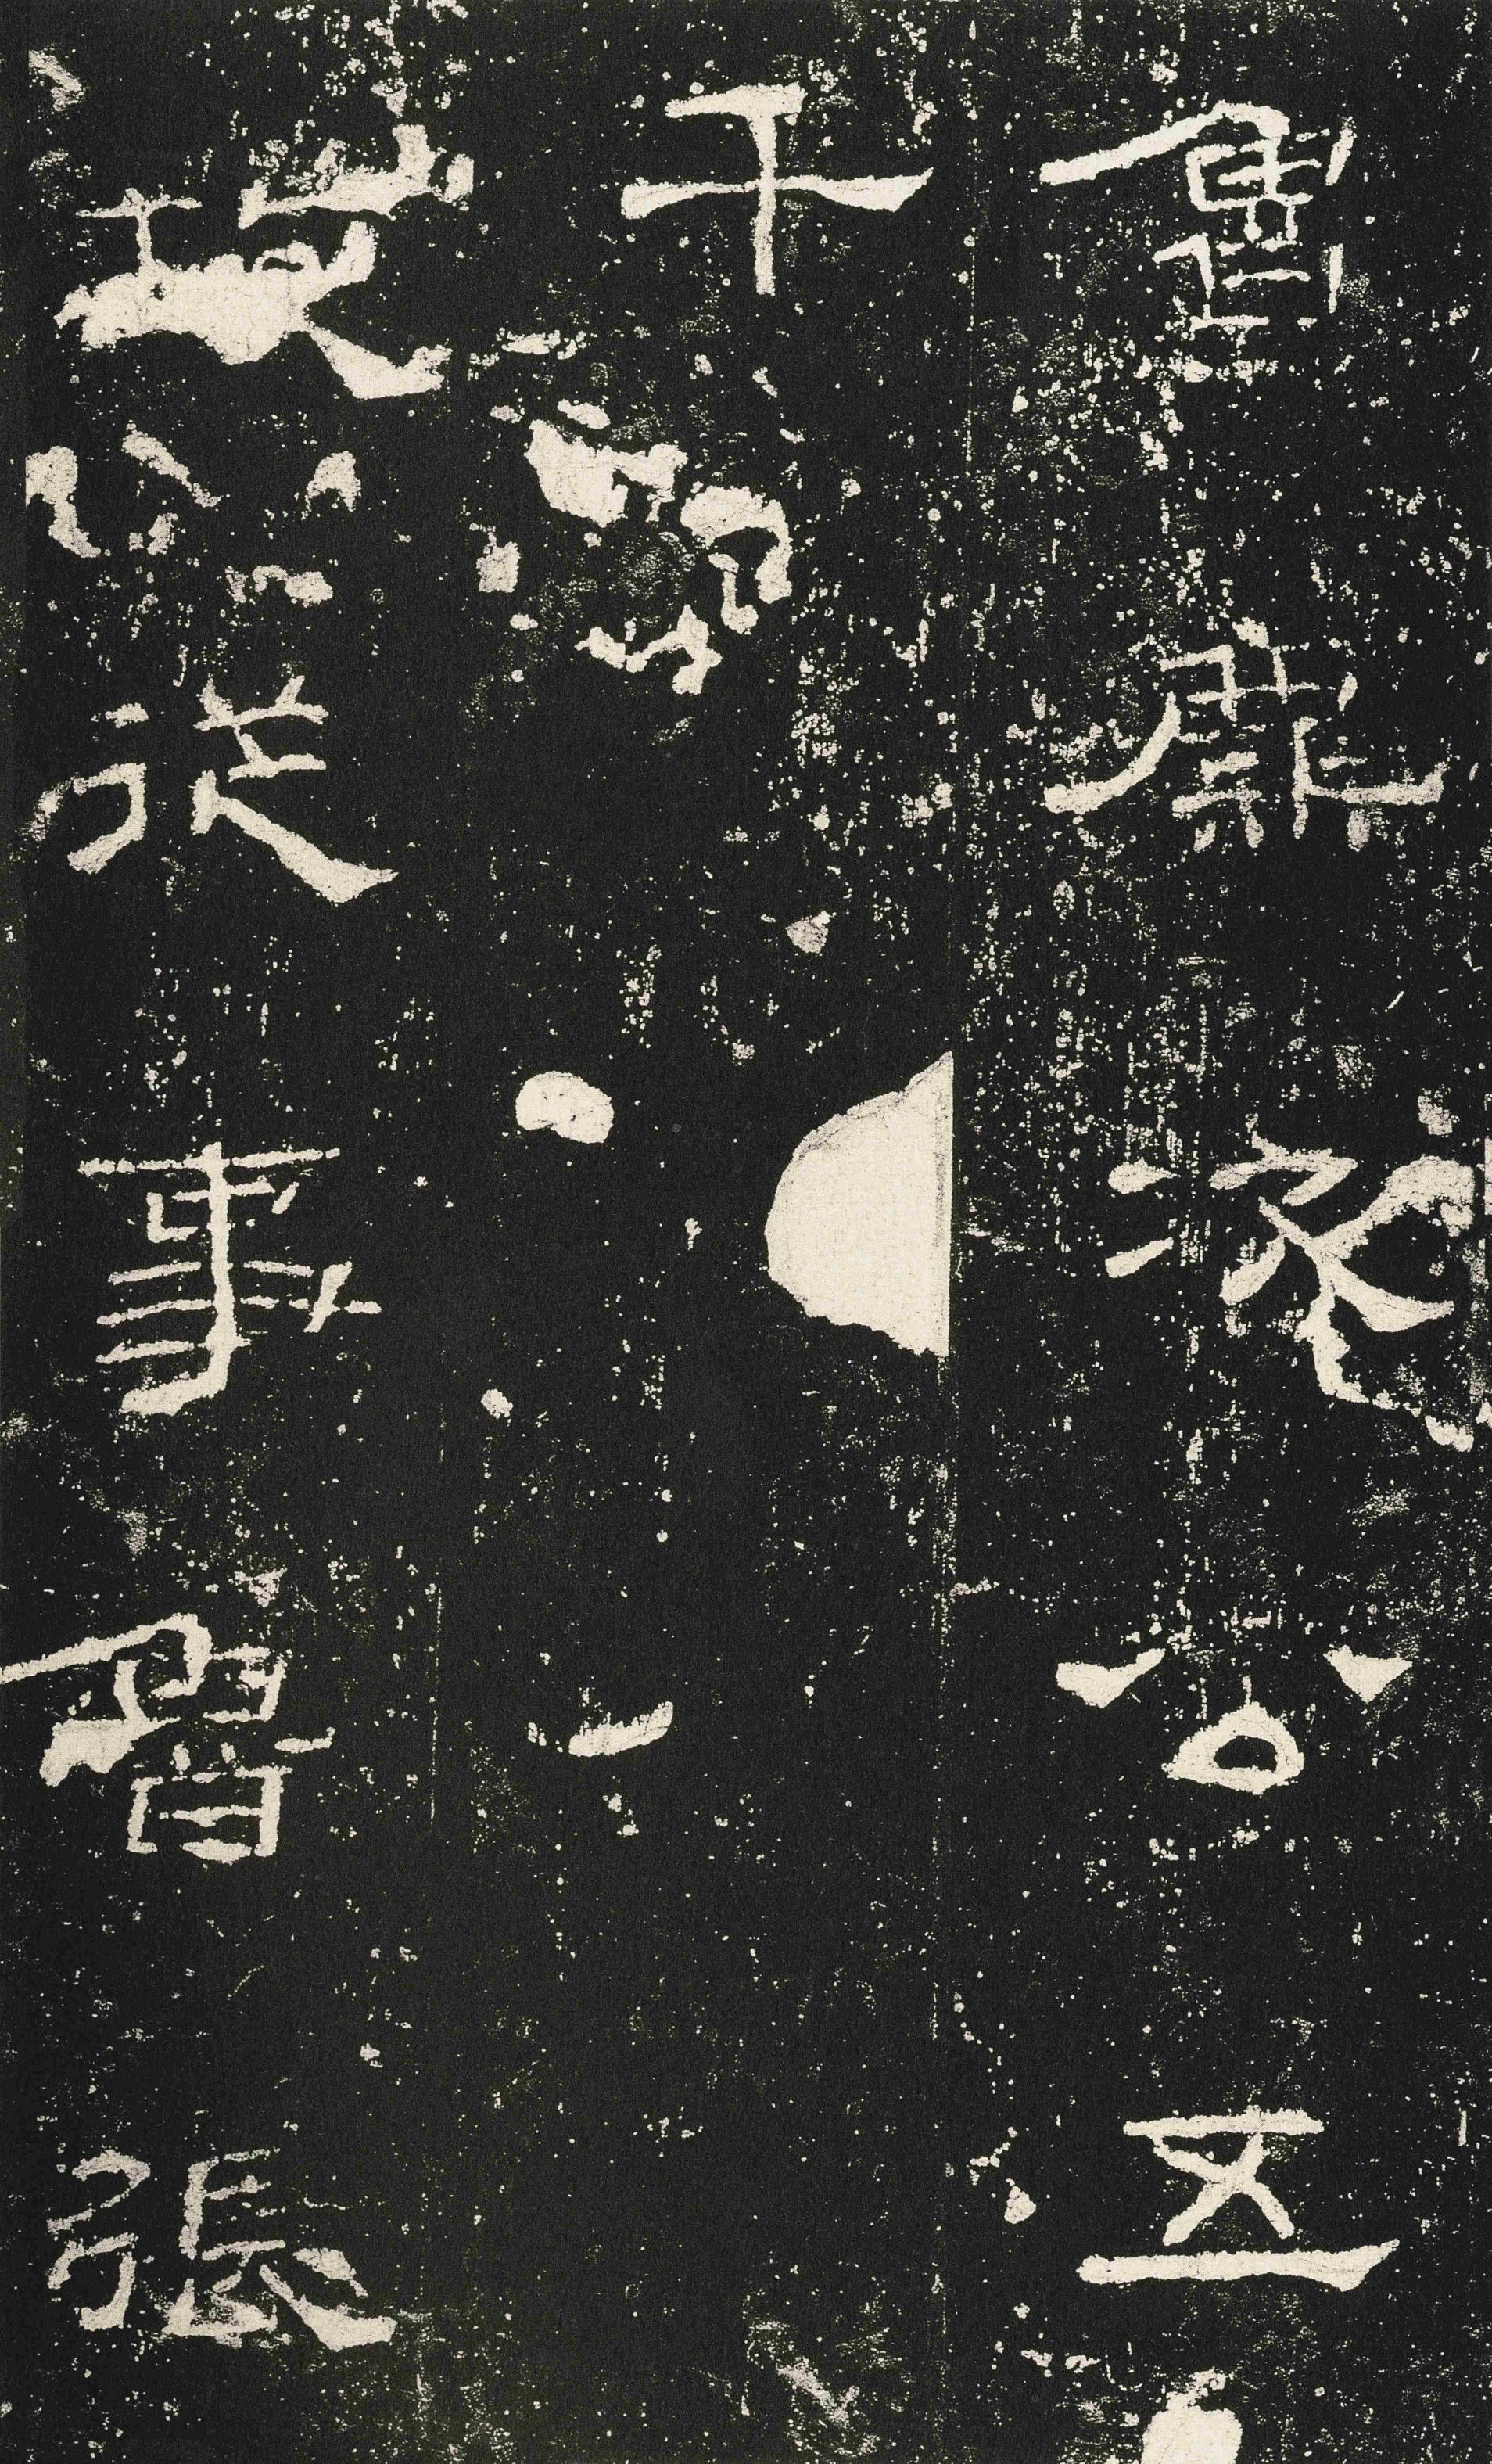 魯麃次公五
千
故從事魯張